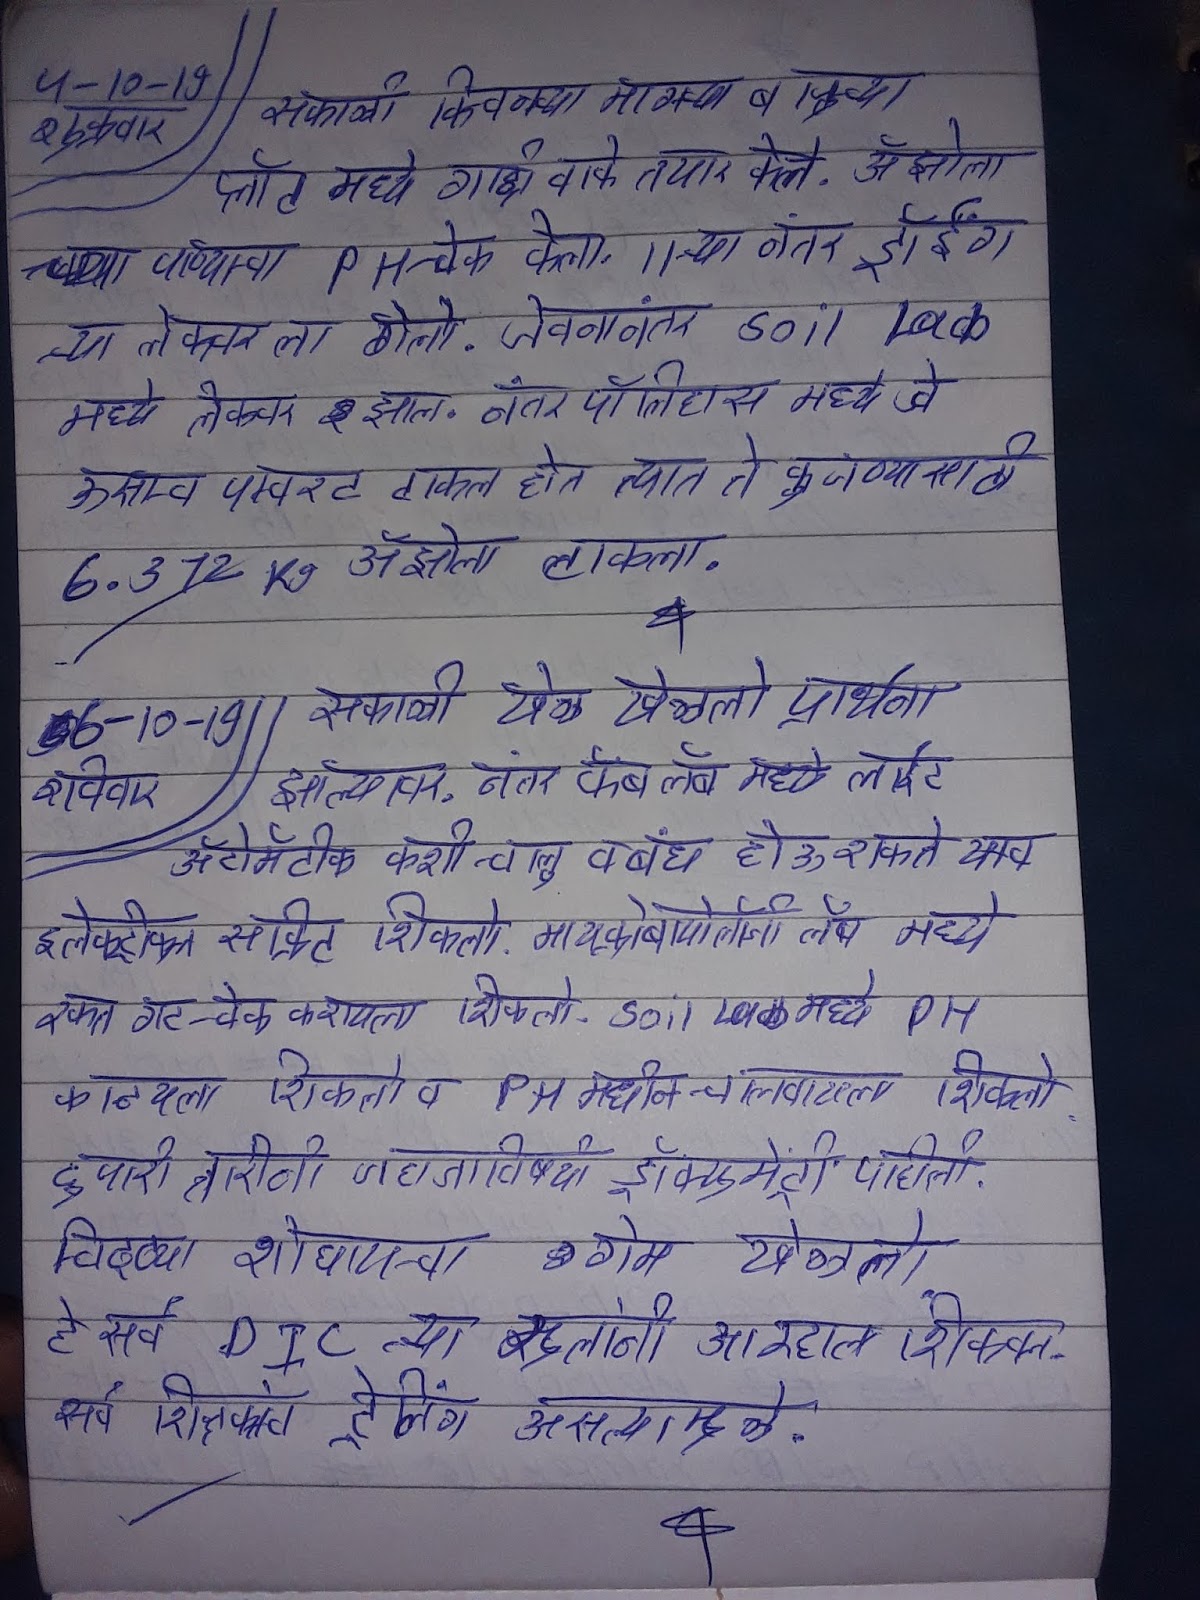 ५-१०-१९
शुक्रवार
सकाळी किचनच्या मागच्या बाजूच्या
प्लॉट मध्ये गादी वाफे तयार केले. अ‍ॅझोला
च्या पाण्याचा PH चेक केला. ११ च्या नंतर ड्रॉईंग
च्या लेक्चर ला गेलो. जेवनानंतर soil Lab
मध्ये लेक्चर झाल. नंतर पॉलिहाउस मध्ये जे
ऊसाच पाचरट टाकल होत त्यात ते कुजण्यासाठी
6.372 Kg अ‍ॅझोला टाकला.
06-10-19
रविवार
सकाळी खेळ खेळलो प्रार्थना
झाल्यावर. नंतर फॅब लॅब मध्ये लाईट
अ‍ॅटोमॅटीक कशी चालु व बंध होऊ शकते याच
इलेक्ट्रीकल सर्किट शिकलो. मायक्रोबायोलॉजी लॅब मध्ये
रक्त गट चेक करायला शिकलो. soil Lab मध्ये PH
काढायला शिकलो व PH मशीन चालवायला शिकलो.
दुपारी जहाजाविषयी डॉक्युमेंट्री पाहीली.
चिठ्ठ्या शोधायचा गेम खेळलो
हे सर्व DIC च्या आम्हाला शिकवल.
सर्व शिक्षकांच ट्रेनिंग असल्यामुळे.